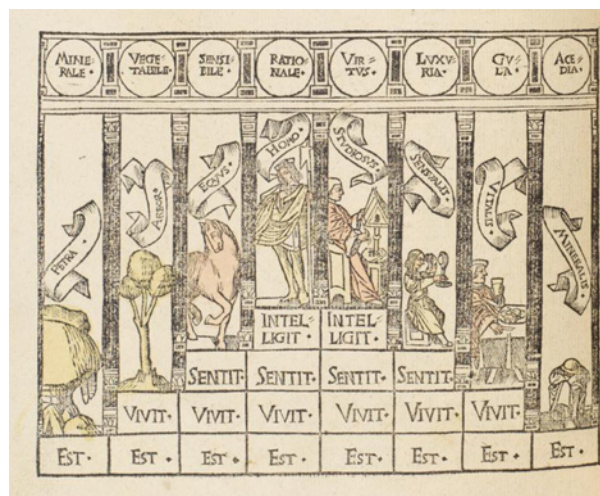 MINE=
RALE·
VEGE=
TABILE·
SENSI=
BILE·
RATIO=
NALE·
VIR=
TVS·
LVXV=
RIA·
GV=
LA·
ACE=
DIA·
PETRA·
ARBOR·
EQVVS·
HOMO·
STVDIOSVS·
SENSVALIS·
VITALIS·
MINERALIS·
INTEL=
LIGIT·
INTEL=
LIGIT·
SENTIT·
SENTIT·
SENTIT·
SENTIT·
VIVIT·
VIVIT·
VIVIT·
VIVIT·
VIVIT·
VIVIT·
EST·
EST·
EST·
EST·
EST·
EST·
EST·
EST·